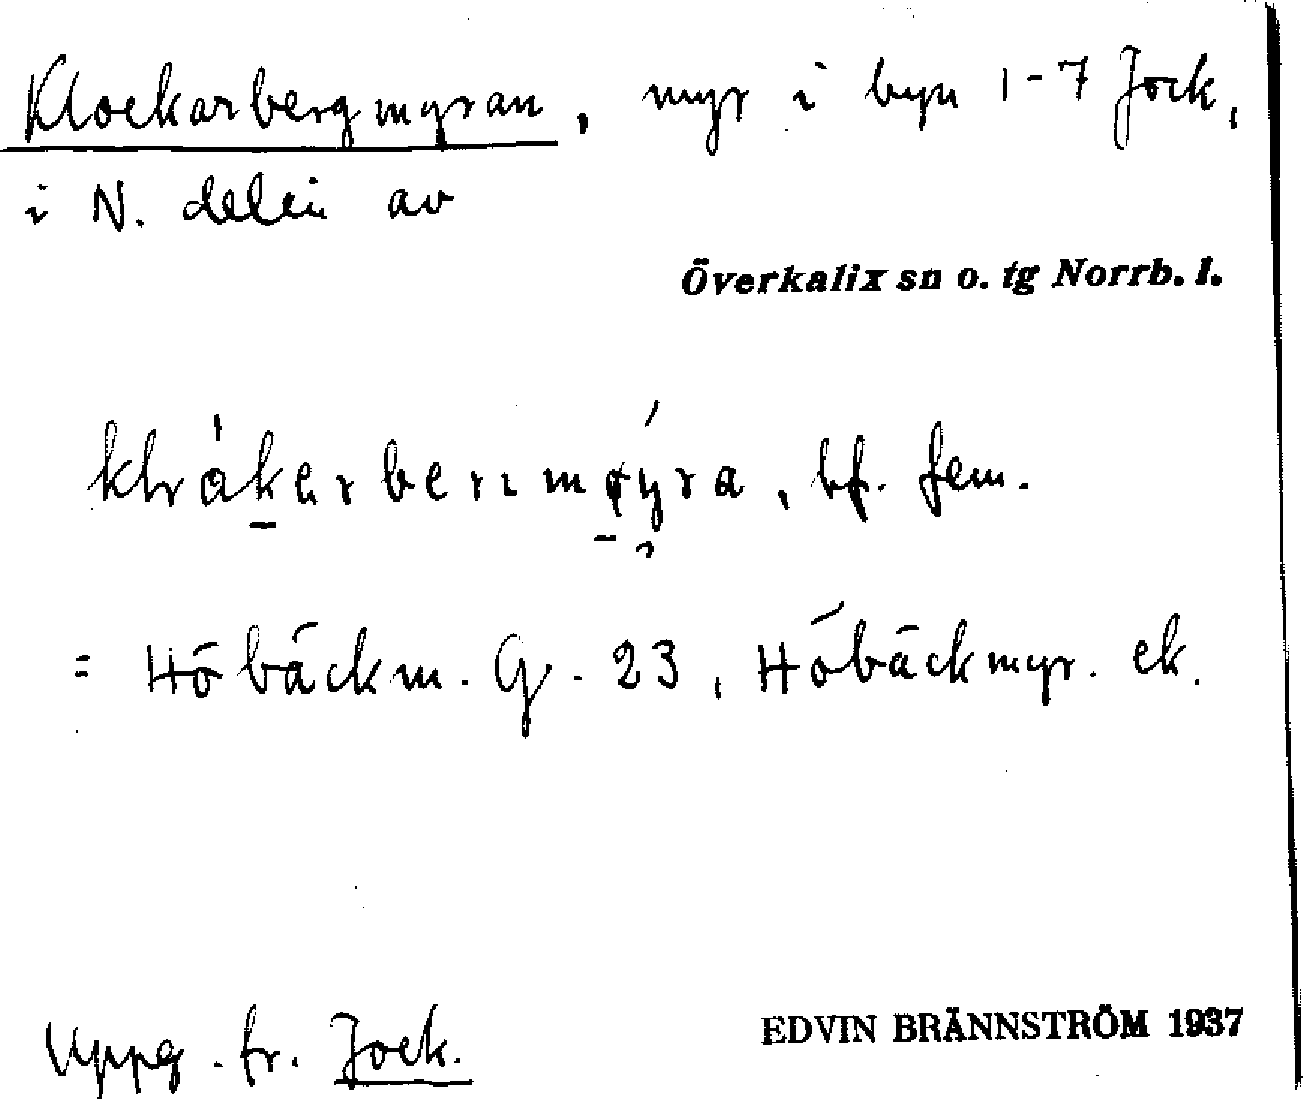 Klockarbergmyran, myr i byn 1-7 Jock,
i N. delen av
Överkalix sn o. tg Norrb. l.
bf. fem.
= Höbäckm. G. 23, Höbäckmyr. ek.
Uppg. fr. Jock.
EDVIN BRÄNNSTRÖM 1937